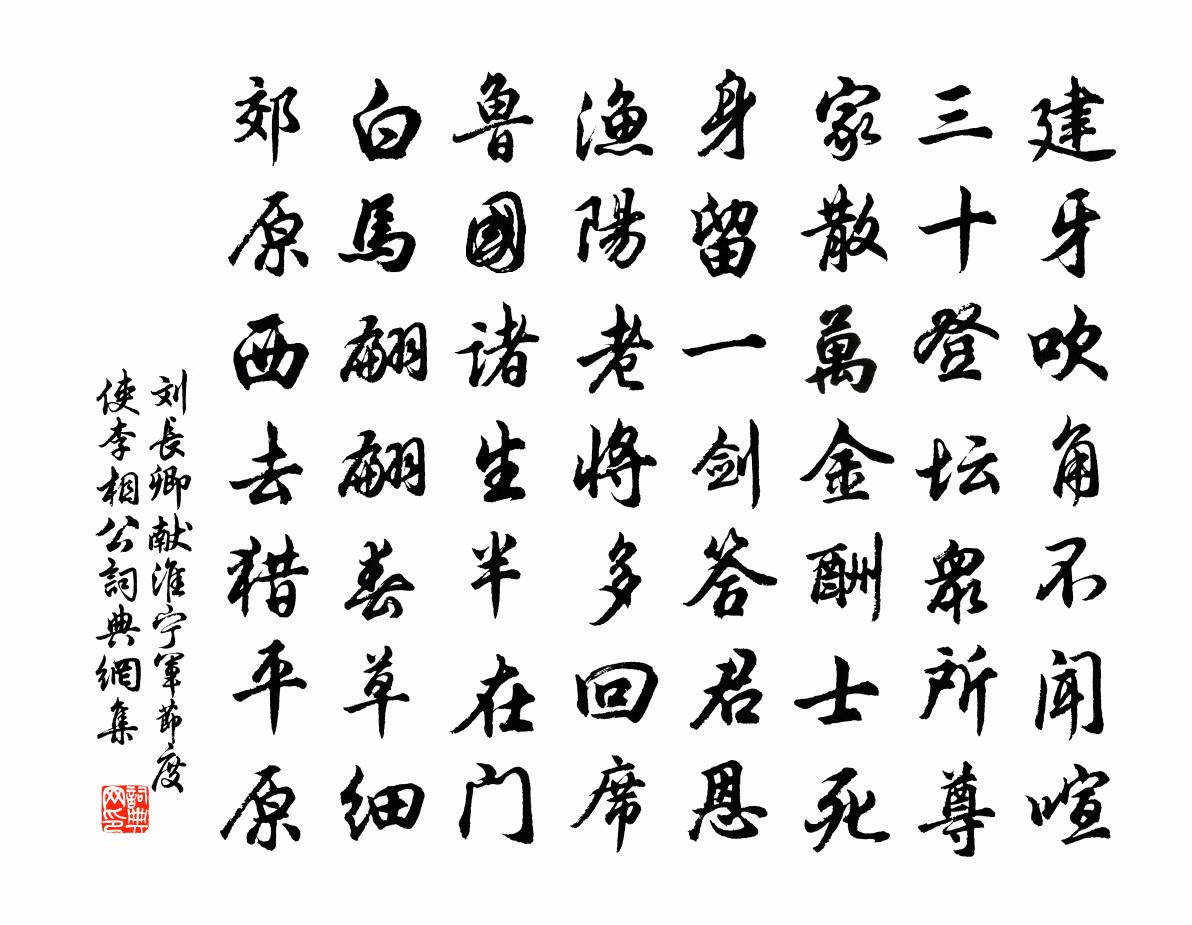 建牙吹角不闻喧
三十登坛眾所尊
家散萬金酬士死
身留一剑答君恩
漁陽老将多回席
魯國诸生半在门
白馬翩翩春草细
郊原西去猎平原
刘長卿献淮宁軍節度
使李相公詞典網集
詞典
网印